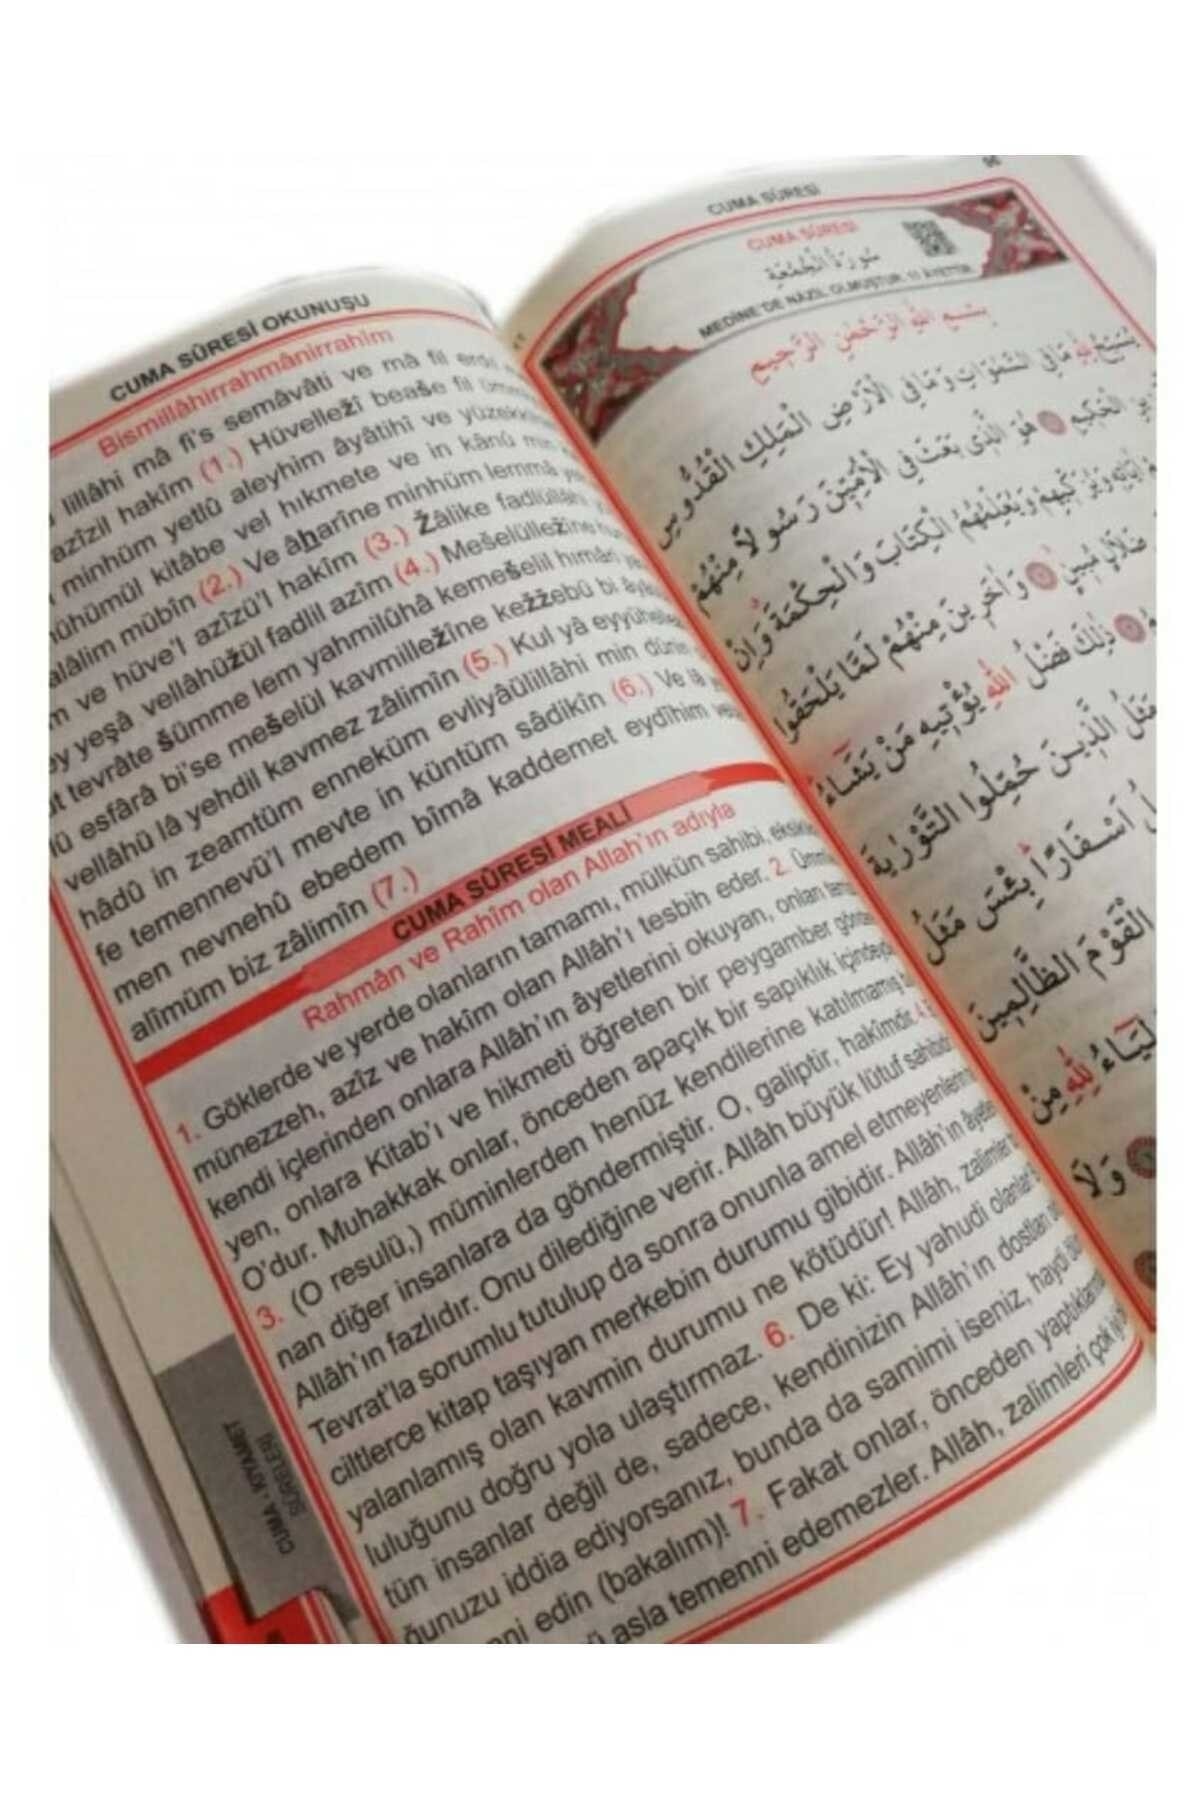 CUMA SÛRESİ OKUNUŞU
Bismillâhirrahmânirrahîm
lillâhi mâ fi's semâvâti ve mâ fil erdı
azîzil hakîm (1.) Hüvelležî beaše fil ümm
minhüm yetlû aleyhim âyâtihî ve yüzekk
kitâbe vel hıkmete ve in kânû min
alâlim mübîn (2.) Ve âharîne minhüm lemmâ
ve hüve'l azîzü'l hakîm (3.) Žâlike fadlüllâhi
yeşâ vellâhüžül fadlil azîm (4.) Mešelülležîne
tevrâte šümme lem yahmilûhâ kemešelil hımâri
esfârâ bi'se mešelül kavmillezîne kežžebû bi
vellâhü lâ yehdil kavmez zâlimîn (5.) Kul yâ eyyühelle
hâdû in zeamtüm enneküm evliyâülillâhi min dûni
fe temennevü'l mevte in küntüm sâdikîn (6.) Ve lâ
men nevnehû ebedem bîmâ kaddemet eydîhim
alîmüm biz zâlimîn (7.)
CUMA SÛRESİ MEALİ
Rahmân ve Rahîm olan Allah'ın adıyla
1. Göklerde ve yerde olanların tamamı, mülkün sahibi,
münezzeh, azîz ve hakîm olan Allâh'ı tesbih eder. 2.
kendi içlerinden onlara Allâh'ın âyetlerini okuyan, onları
yen, onlara Kitab'ı ve hikmeti öğreten bir peygamber
O'dur. Muhakkak onlar, önceden apaçık bir sapıklık
3. (O resulü,) müminlerden henüz kendilerine katılmamış
nan diğer insanlara da göndermiştir. O, galiptir, hakîmdir. 4.
Allâh'ın fazlıdır. Onu dilediğine verir. Allâh büyük lütuf
Tevrat'la sorumlu tutulup da sonra onunla amel etmeyenlerin
ciltlerce kitap taşıyan merkebin durumu gibidir. Allâh'ın
yalanlamış olan kavmin durumu ne kötüdür! Allâh, zalimler
luluğunu doğru yola ulaştırmaz. 6. De ki: Ey yahudi olanlar!
tün insanlar değil de, sadece, kendinizin Allâh'ın dostları
ğunuzu iddia ediyorsanız, bunda da samimi iseniz, haydi
edin (bakalım)! 7. Fakat onlar, önceden
asla temenni edemezler. Allâh, zalimleri çok
CUMA, KIYAMET
SÛRELERİ
CUMA SÛRESİ
CUMA SÛRESİ
سُورَةُ الْجُمُعَةِ
MEDİNE'DE NÂZİL OLMUŞTUR. 11 ÂYETTİR.
بِسْمِ اللّٰهِ الرَّحْمٰنِ الرَّحِيمِ
يُسَبِّحُ لِلّٰهِ مَا فِي السَّمٰوَاتِ وَمَا فِي الْاَرْضِ الْمَلِكِ الْقُدُّوسِ
الْحَكِيمِ هُوَ الَّذِي بَعَثَ فِي الْاُمِّيّنَ رَسُولًا مِنْهُمْ
اٰيَاتِهِ وَيُزَكِّيهِمْ وَيُعَلِّمُهُمُ الْكِتَابَ وَالْحِكْمَةَ وَاِنْ
ضَلَالٍ مُبِينٍ وَاٰخَرِينَ مِنْهُمْ لَمَّا يَلْحَقُوا
ذٰلِكَ فَضْلُ اللّٰهِ يُؤْتِيهِ مَنْ يَشَاءُ
مَثَلُ الَّذِينَ حُمِّلُوا التَّوْرٰيةَ
اَسْفَارًا بِئْسَ مَثَلُ
الْقَوْمَ الظَّالِمِينَ
لِلّٰهِ مِنْ
وَلَا